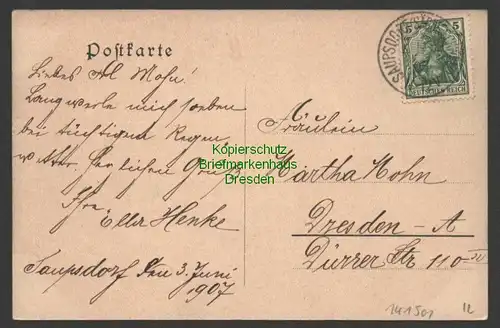 Postkarte
SAUPSDORF
5 5
DEUTSCHES REICH
Liebes Frl Mohn!
Langweile mich soeben
bei tüchtigem Regen
u. herzlichen Gruß
Ihre
Ella Henke
Saupsdorf den 3. Juni
1907
Fräulein
Martha Mohn
Dresden - A
Dürrer Str 110
Kopierschutz
Briefmarkenhaus
Dresden
141501